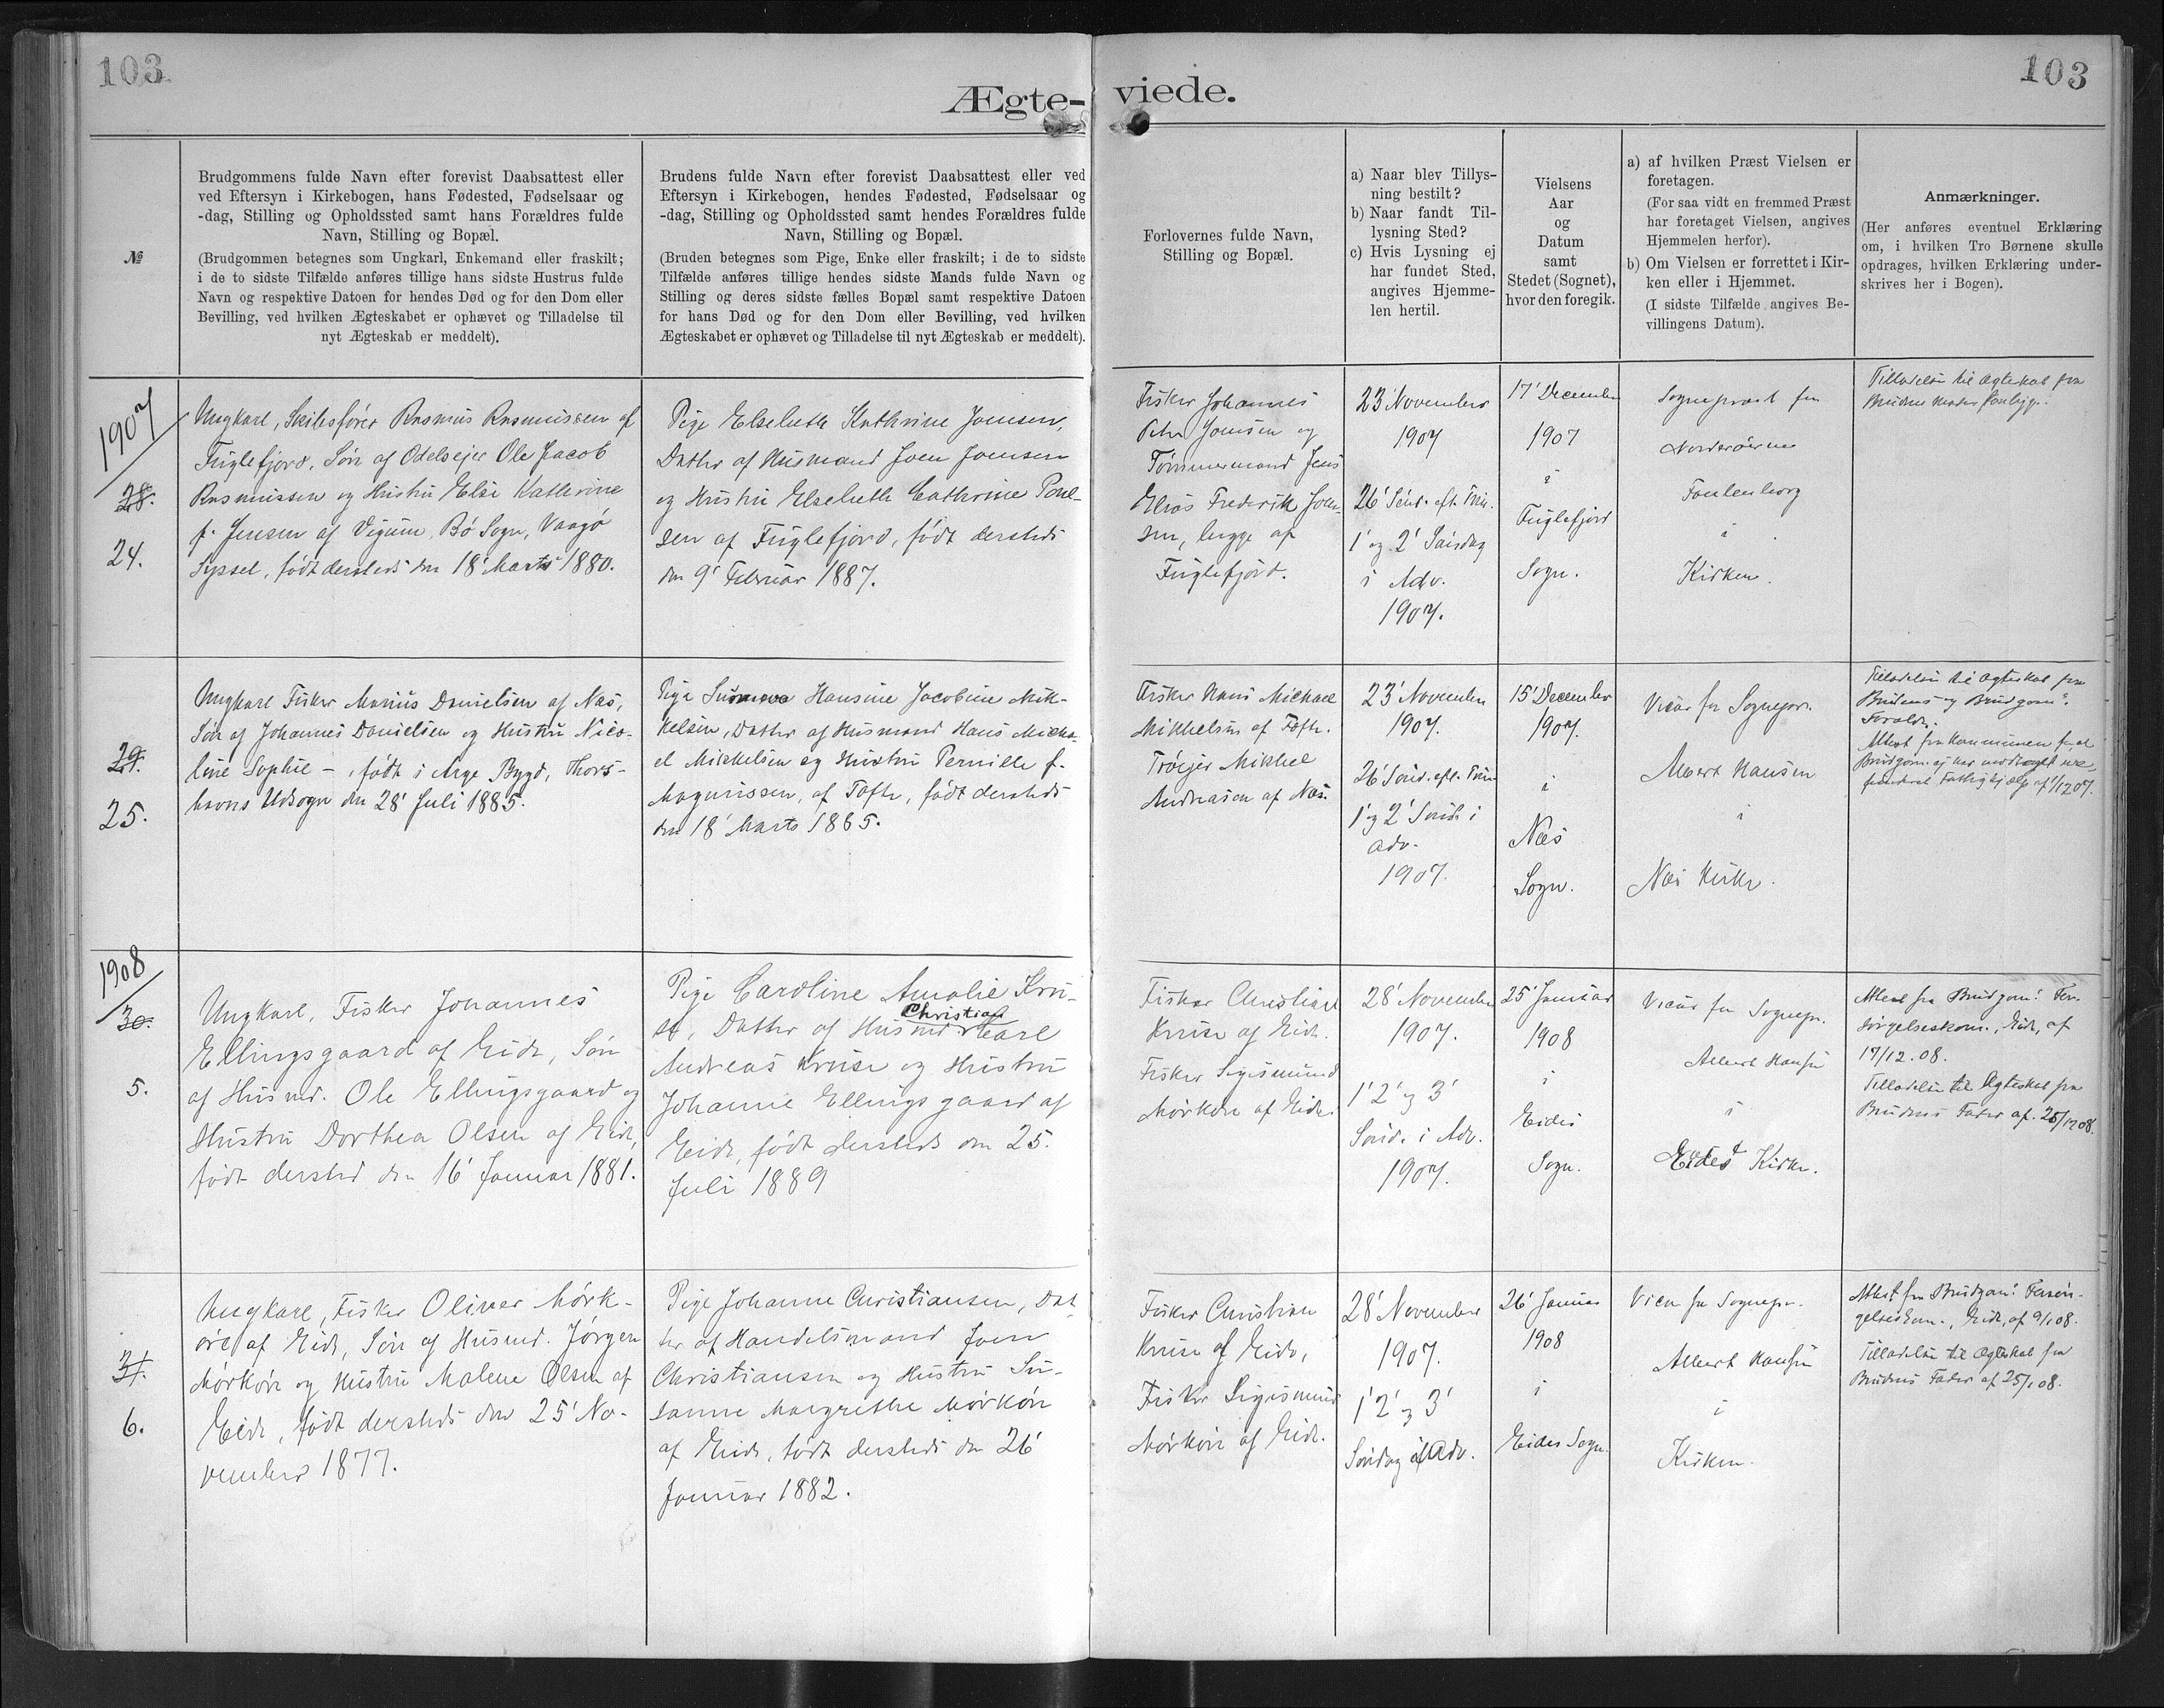 103
103
Ægte-
viede.
№
Brudgommens fulde Navn efter forevist Daabsattest eller
ved Eftersyn i Kirkebogen, hans Fødested, Fødselsaar og
-dag, Stilling og Opholdssted samt hans Forældres fulde
Navn, Stilling og Bopæl.
(Brudgommen betegnes som Ungkarl, Enkemand eller fraskilt;
i de to sidste Tilfælde anføres tillige hans sidste Hustrus fulde
Navn og respektive Datoen for hendes Død og for den Dom eller
Bevilling, ved hvilken Ægteskabet er ophævet og Tilladelse til
nyt Ægteskab er meddelt).
Brudens fulde Navn efter forevist Daabsattest eller ved
Eftersyn i Kirkebogen, hendes Fødested, Fødselsaar og
-dag, Stilling og Opholdssted samt hendes Forældres fulde
Navn, Stilling og Bopæl.
(Bruden betegnes som Pige, Enke eller fraskilt; i de to sidste
Tilfælde anføres tillige hendes sidste Mands fulde Navn og
Stilling og deres sidste fælles Bopæl samt respektive Datoen
for hans Død og for den Dom eller Bevilling, ved hvilken
Ægteskabet er ophævet og Tilladelse til nyt Ægteskab er meddelt).
Forlovernes fulde Navn,
Stilling og Bopæl.
a) Naar blev Tillys-
ning bestilt?
b) Naar fandt Til-
lysning Sted?
c) Hvis Lysning ej
har fundet Sted,
angives Hjemme-
len hertil.
Vielsens
Aar
og
Datum
samt
Stedet (Sognet),
hvor den foregik.
a) af hvilken Præst Vielsen er
foretagen.
(For saa vidt en fremmed Præst
har foretaget Vielsen, angives
Hjemmelen herfor).
b) Om Vielsen er forrettet i Kir-
ken eller i Hjemmet.
(I sidste Tilfælde angives Be-
villingens Datum).
Anmærkninger.
(Her anføres eventuel Erklæring
om, i hvilken Tro Børnene skulle
opdrages, hvilken Erklæring under-
skrives her i Bogen).
1907
28.
24.
Ungkarl, Skibsfører Rasmus Rasmussen af
Fuglefjord, Søn af Odelsejer Ole Jacob
Rasmussen og Hustru Elsi Kathrine
f. Jensen af Vigum, Bø Sogn, Vaagø
Syssel, født dersteds den 18' Marts 1880.
Pige Elsebeth Kathrine Joensen,
Datter af Husmand Joen Joensen
og Hustru Elsebeth Cathrine Poul-
sen af Fuglefjord, født dersteds
den 9' Februar 1887.
Fisker Johannes
Peter Joensen og
Tømmermand Jens
Elias Frederik Joen-
sen, begge af
Fuglefjord.
23' November
1907
26' Sønd. eft. Trin.
1' og 2' Søndag
i Adv.
1907.
17' December
1907
i
Fuglefjord
Sogn.
Sognepræst for
Norderøerne
Foulenborg
i
Kirken.
Tilladelse til Ægteskab fra
Brudens Moder
29.
25.
Ungkarl Fisker Marius Danielsen af Næs,
Søn af Johannes Danielsen og Hustru Nico-
line Sophie – , født i Arge Bygd, Thors-
havns Udsogn den 28' Juli 1885.
Pige Hansine Jacobine Mik-
kelsen, Datter af Husmand Hans Micha-
el Mikkelsen og Hustru Pernille f.
Magnussen, af Tofte, født dersteds
den 18' Marts 1885.
Fisker Hans Michael
Mikkelsen af Tofte.
Trøjer Mikkel
Andreasen af Næs.
23' November
1907.
26' Sønd. eft. Trin.
1' og 2' Sønd. i
Adv.
1907.
15' December
1907.
i
Næs
Sogn.
Vicar for Sognepr.
Albert Hansen
i
Næs Kirke.
Tilladelse til Ægteskab fra
Brudens og Brudgom's
Foræld.
Attest fra Kommunen for at
Brudgom. ej har modtaget
Fattighjælp af 1/12 07.
1908
30.
5.
Ungkarl, Fisker Johannes
Ellingsgaard af Eide, Søn
af Husmd. Ole Ellingsgaard og
Hustru Dorthea Olsen af Eide,
født dersted den 16' Januar 1881.
Pige Caroline Amalie Kru-
se, Datter af Husmd. Christian Carl
Andreas Kruse og Hustru
Johanne Ellingsgaard af
Eide, født dersteds den 25.
Juli 1889
Fisker Christian
Kruse af Eide.
Fisker Sigismund
Mørkøre af Eide.
28' November
1907.
1' 2' og 3'
Sønd. i Adv.
1907.
25' Januar
1908
i
Eides
Sogn.
Vicar for Sognepr.
Albert Hansen
i
Eides Kirke.
Attest fra Brudgom's For-
sørgelseskom., Eide, af
17/12.08.
Tilladelse til Ægteskab fra
Brudens Fader af 25/12 08.
31.
6.
Ungkarl, Fisker Oliver Mørk-
øre af Eide, Søn af Husmd. Jørgen
Mørkøre og Hustru Malene Olsen af
Eide, født dersteds den 25' No-
vember 1877.
Pige Johanne Christiansen, Dat
ter af Handelsmand Joen
Christiansen og Hustru Su-
sanne Margrethe Mørkøre
af Eide, født dersteds den 26'
Januar 1882.
Fisker Christian
Kruse af Eide,
Fisker Sigismund
Mørkøre af Eide.
28' November
1907.
1' 2' og 3'
Søndag i Adv.
26' Januar
1908
i
Eides Sogn.
Vicar for Sognepr.
Albert Hansen
i
Kirken.
Attest fra Brudgom's Forsør-
gelseskom., Eide, af 9/1 08.
Tilladelse til Ægteskab fra
Brudens Fader af 25/1 08.